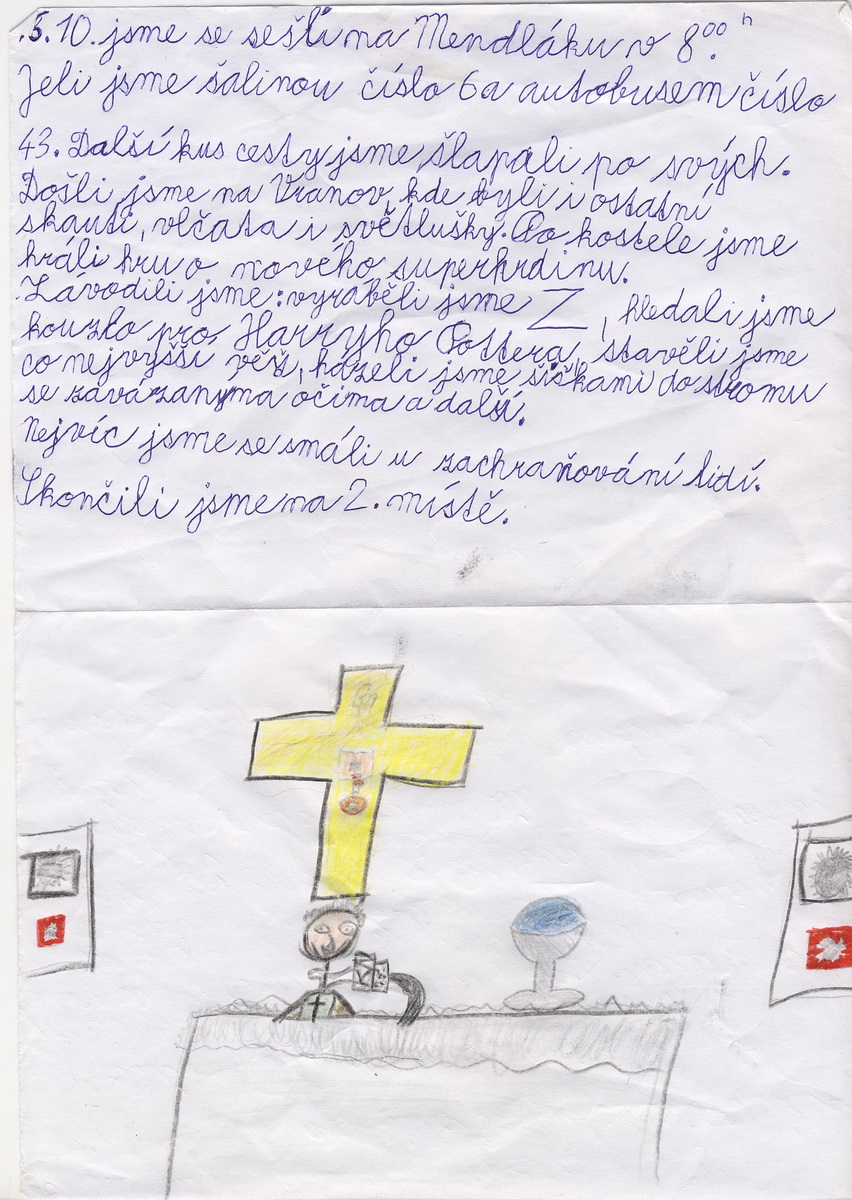 .5.10. jsme se sešli na Mendláku v 8⁰⁰ʰ.
Jeli jsme šalinou číslo 6 a autobusem číslo
43. Další kus cesty jsme šlapali po svých.
Došli jsme na Vranov, kde byli i ostatní
skauti, vlčata i světlušky. Po kostele jsme
hráli hru o nového superhrdinu.
Závodili jsme: vyráběli jsme Z, hledali jsme
kouzlo pro Harryho Pottera, stavěli jsme
co nejvyšší věž, házeli jsme šiškami do stromu
se zavázanýma očima a další.
Nejvíc jsme se smáli u zachraňování lidí.
Skončili jsme na 2. místě.